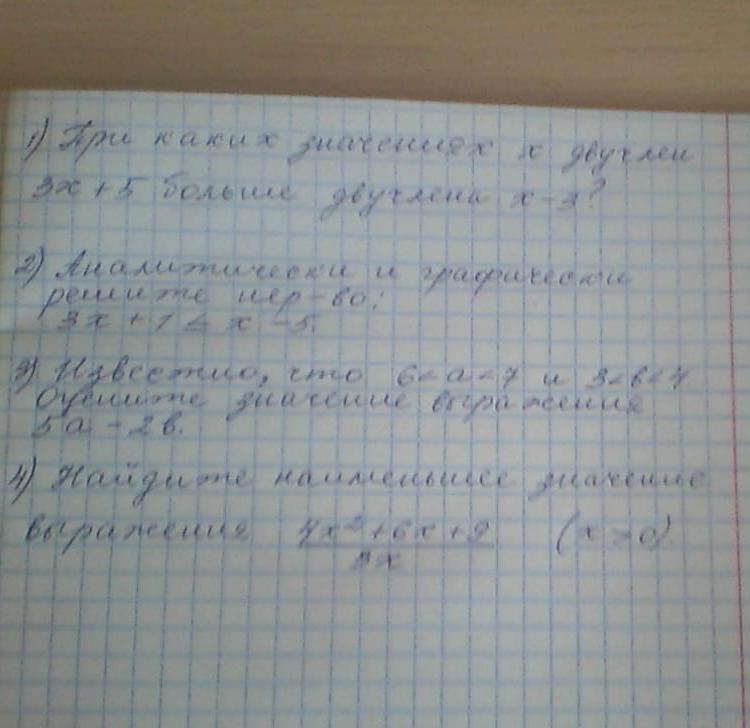 1) При каких значениях x двучлен
3x + 5 больше двучлена x - 3?
2) Аналитически и графически
решите нер-во:
3x + 1 ≤ x - 5.
3) Известно, что 6 < a < 7 и 3 < b < 4.
Оцените значение выражения
5a - 2b.
4) Найдите наименьшее значение
выражения (4x² + 6x + 9)/3x (x > 0).